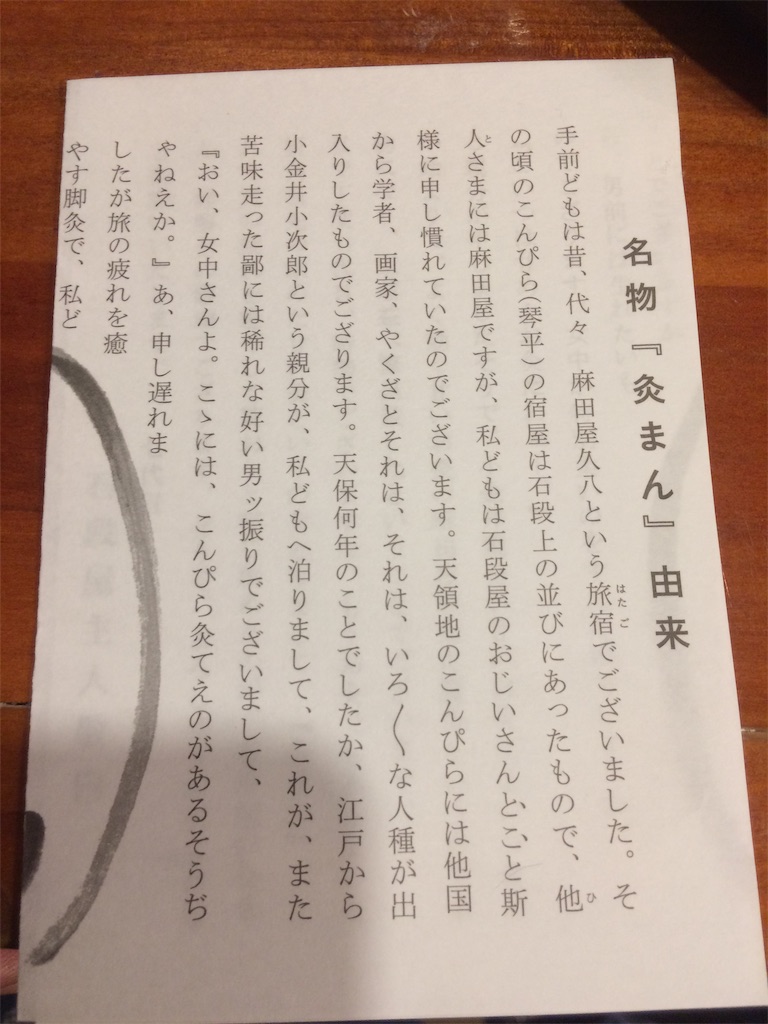 名物『灸まん』由来
手前どもは昔、代々　麻田屋久八という旅宿でございました。そ
はたご
の頃のこんぴら（琴平）の宿屋は石段上の並びにあったもので、他
ひ
人さまには麻田屋ですが、私どもは石段屋のおじいさんとこと斯
と
様に申し慣れていたのでございます。天領地のこんぴらには他国
から学者、画家、やくざとそれは、それは、いろ〳〵な人種が出
入りしたものでござります。天保何年のことでしたか、江戸から
小金井小次郎という親分が、私どもへ泊りまして、これが、また
苦味走った鄙には稀れな好い男ッ振りでございまして、
『おい、女中さんよ。こゝには、こんぴら灸てえのがあるそうぢ
ゃねえか。』あ、申し遅れま
したが旅の疲れを癒
やす脚灸で、私ど